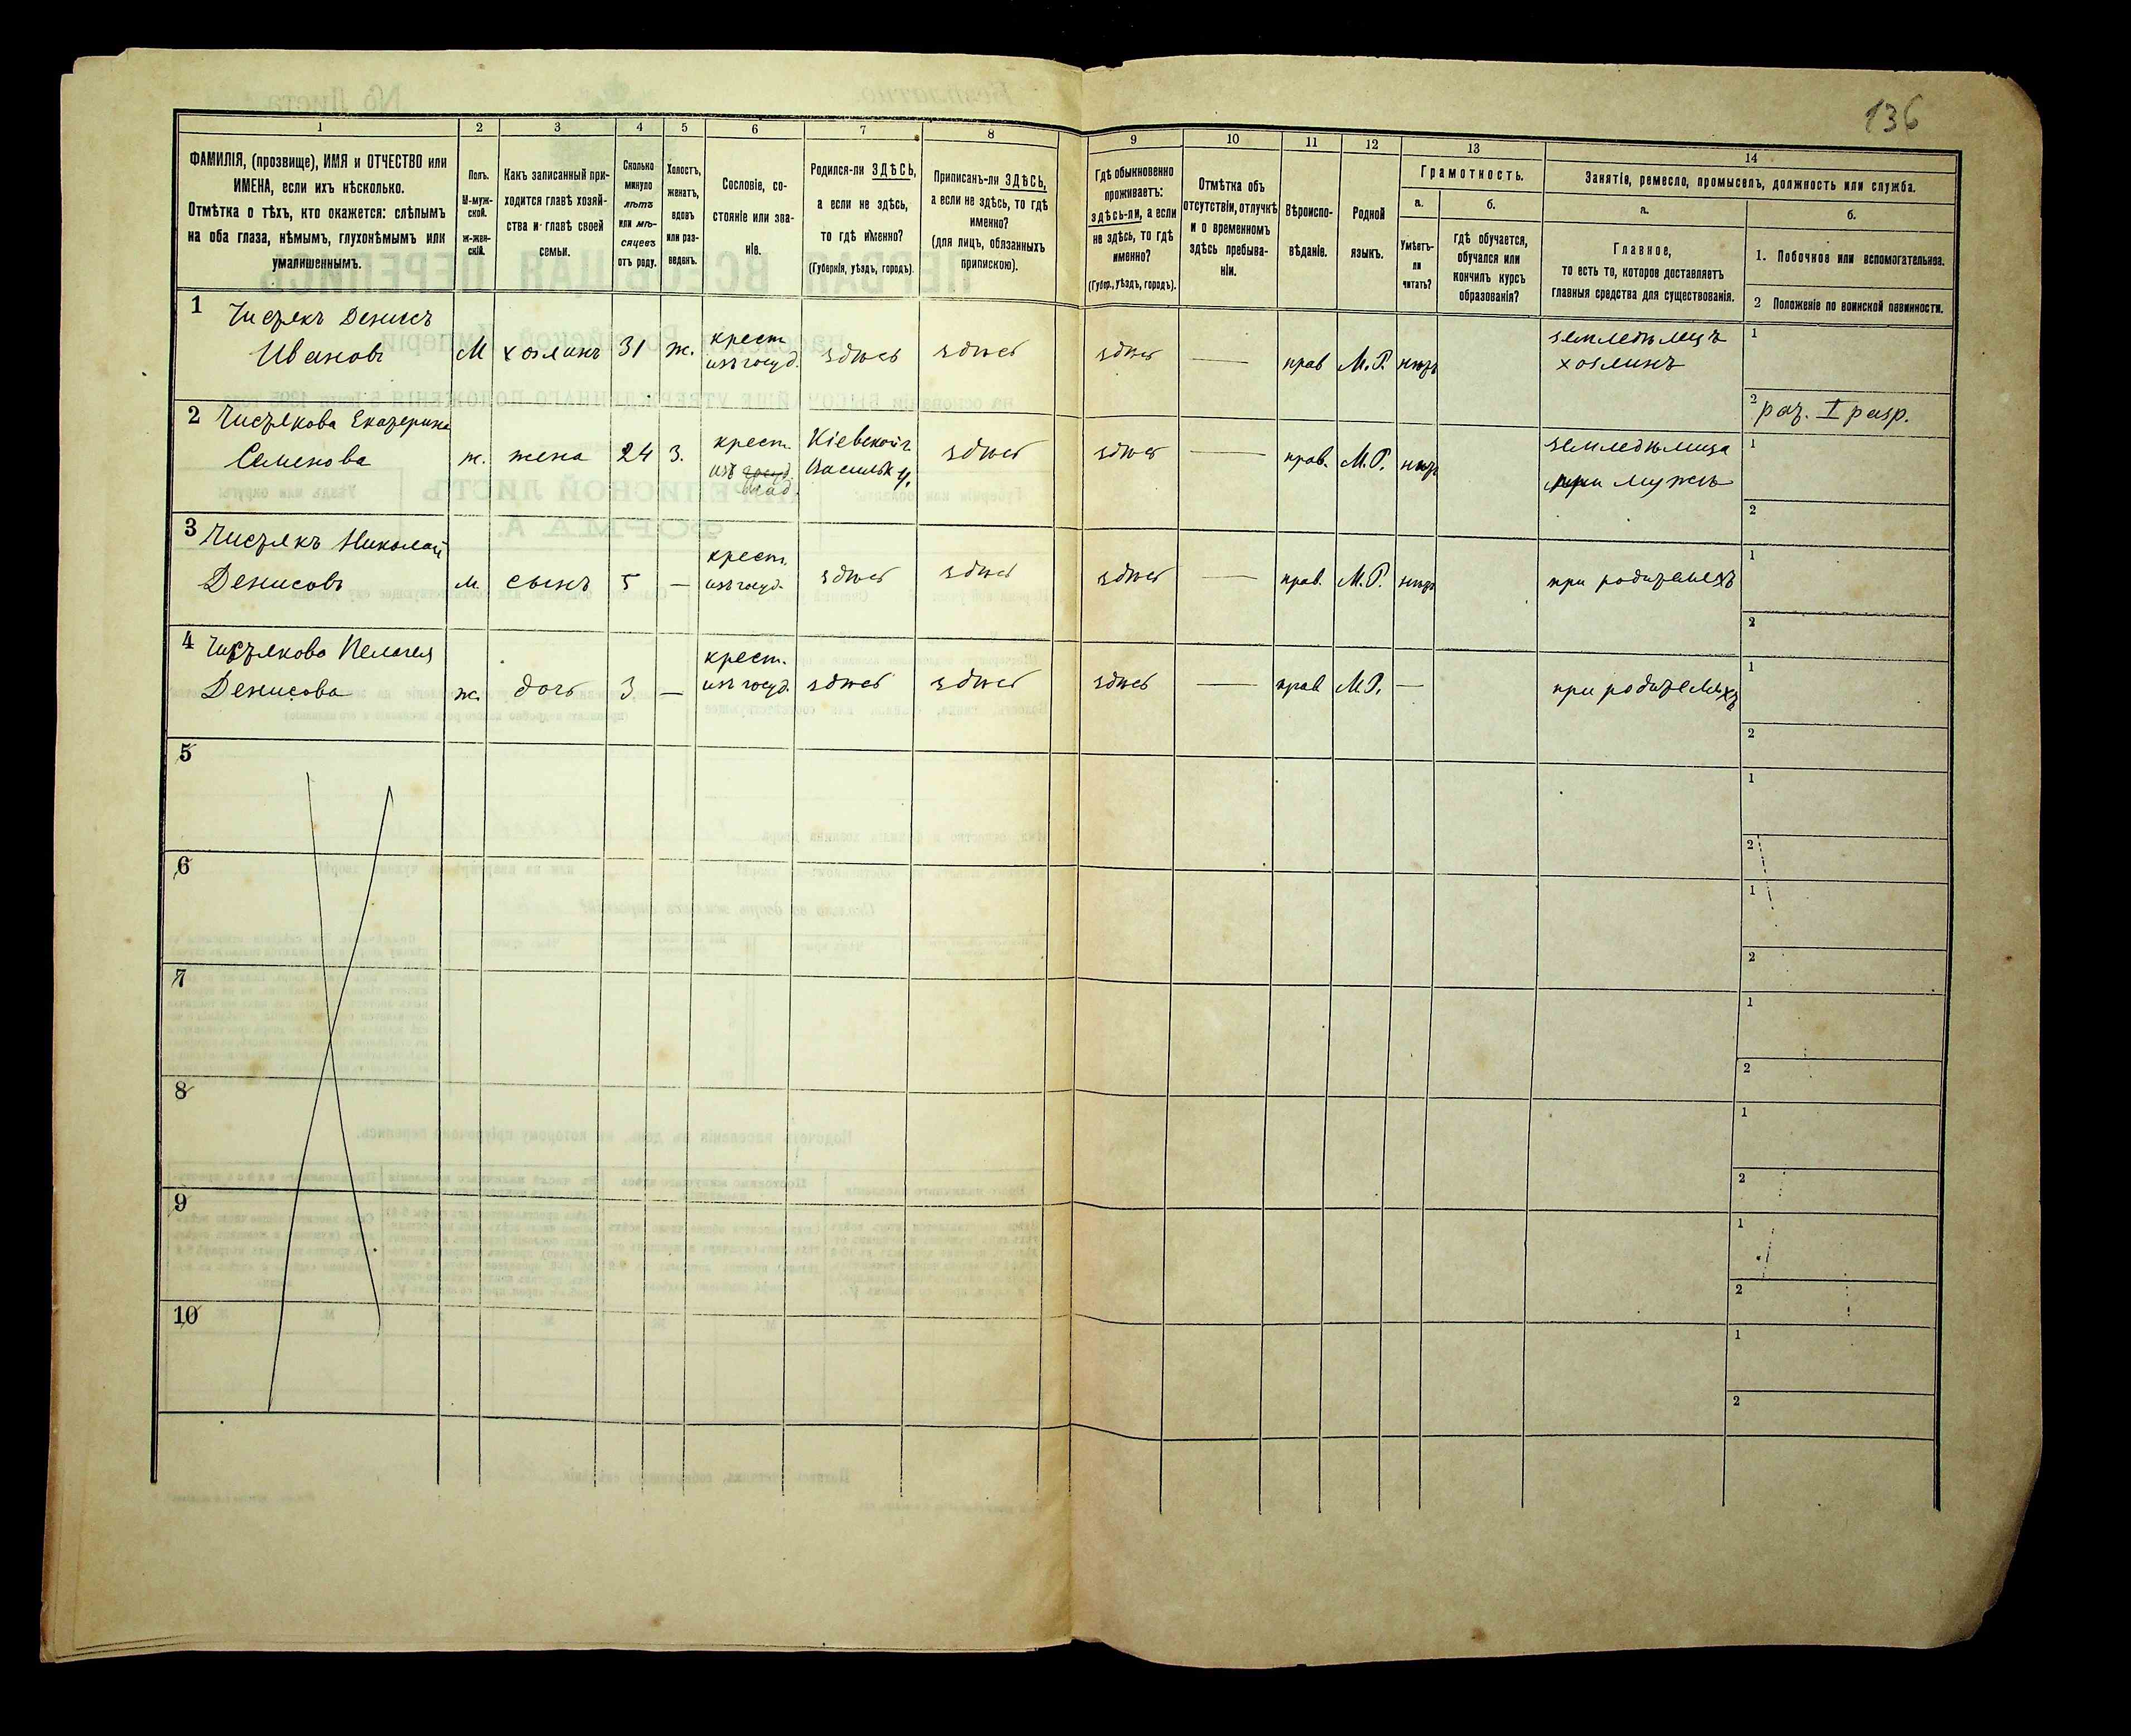 136
1 2 3 4 5 6 7 8 9 10 11 12 13 14
ФАМИЛІЯ, (прозвище), ИМЯ и ОТЧЕСТВО или
ИМЕНА, если ихъ нѣсколько.
Отмѣтка о тѣхъ, кто окажется: слѣпымъ
на оба глаза, нѣмымъ, глухонѣмымъ или
умалишеннымъ.
Полъ.
М-муж-
ской.
ж-жен-
скій.
Какъ записанный при-
ходится главѣ хозяй-
ства и главѣ своей
семьи.
Сколько
минуло
лѣтъ
или мѣ-
сяцевъ
отъ роду.
Холостъ,
женатъ,
вдовъ
или раз-
веденъ.
Сословіе, со-
стояніе или зва-
ніе.
Родился-ли ЗДѢСЬ,
а если не здѣсь,
то гдѣ именно?
(Губернія, уѣздъ, городъ).
Приписанъ-ли ЗДѢСЬ,
а если не здѣсь, то гдѣ
именно?
(для лицъ, обязанныхъ
припискою).
Гдѣ обыкновенно
проживаетъ:
здѣсь-ли, а если
не здѣсь, то гдѣ
именно?
(Губер., уѣздъ, городъ).
Отмѣтка объ
отсутствіи, отлучкѣ
и о временномъ
здѣсь пребыва-
ніи.
Вѣроиспо-
вѣданіе.
Родной
языкъ.
Грамотность.
а.
Умѣетъ-
ли
читать?
б.
гдѣ обучается,
обучался или
кончилъ курсъ
образованія?
Занятіе, ремесло, промыселъ, должность или служба.
а.
Главное,
то есть то, которое доставляетъ
главныя средства для существованія.
б.
1. Побочное или вспомогательное.
2 Положеніе по воинской повинности.
1 Чистякъ Денисъ
Ивановъ
М
хозяинъ
31
ж.
крест
изъ госуд.
здѣсь
здѣсь
здѣсь
—
прав
М.Р.
нѣтъ
земледѣлецъ
хозяинъ
1
2 рат. I разр.
2 Чистякова Екатерина
Семенова
ж.
жена
24
з.
крест.
изъ госуд.
влад.
Кіевской г.
Васильк у.
здѣсь
здѣсь
—
прав.
М.Р.
нѣтъ
земледѣлица
при мужѣ
1
2
3 Чистякъ Николай
Денисовъ
м.
сынъ
5
—
крест.
изъ госуд.
здѣсь
здѣсь
здѣсь
—
прав.
М.Р.
нѣтъ
при родителяхъ
1
2
4 Чистякова Пелагея
Денисова
ж.
дочь
3
—
крест.
изъ госуд.
здѣсь
здѣсь
здѣсь
—
прав
М.Р.
—
при родителяхъ
1
2
5
1
2
6
1
2
7
1
2
8
1
2
9
1
2
10
1
2